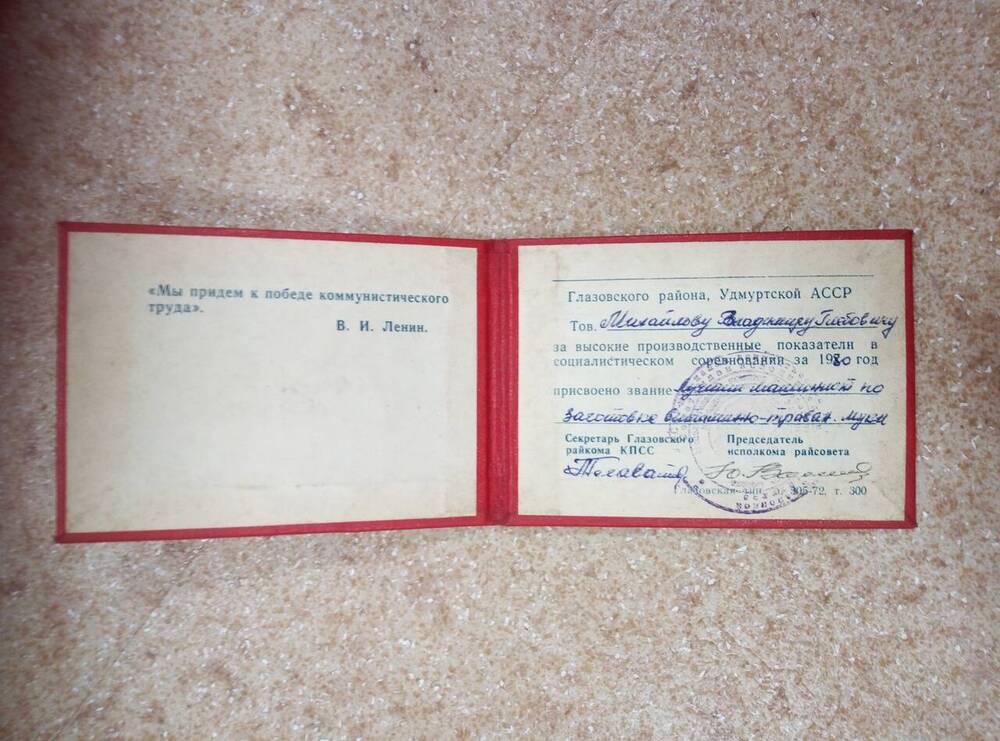 «Мы придем к победе коммунистического
труда».
В. И. Ленин.
Глазовского района, Удмуртской АССР
Тов. Михайлову Владимиру Глебовичу
за высокие производственные показатели в
социалистическом соревновании за 1980 год
присвоено звание Лучший машинист по
заготовке витаминно-травян. муки
Секретарь Глазовского Председатель
райкома КПСС исполкома райсовета
Глазовская тип. з. 305-72, т. 300